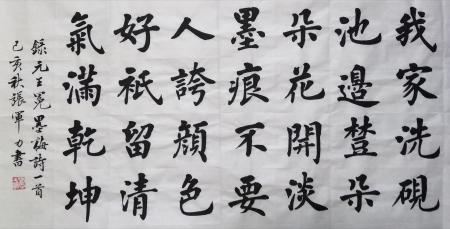 我家洗硯
池邊樹朵
朵花開淡
墨痕不要
人誇顏色
好祇留清
氣滿乾坤
錄元王冕墨梅詩一首
己亥秋張軍力書